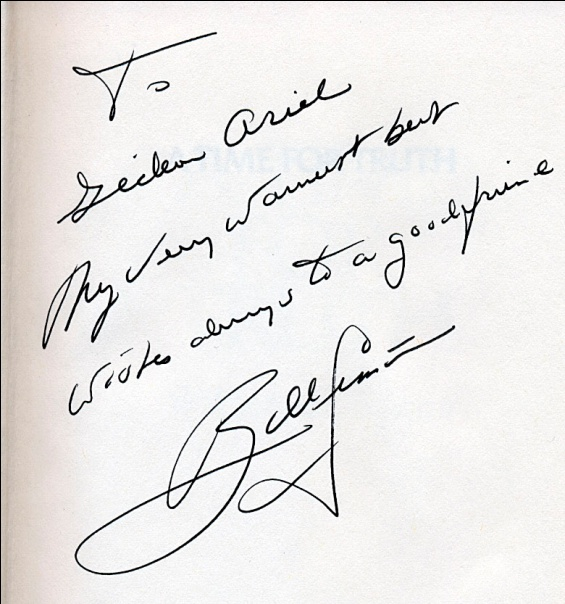 To
Gideon Ariel
My very warmest best
wishes always to a good friend
Bill Simon
A TIME FOR TRUTH